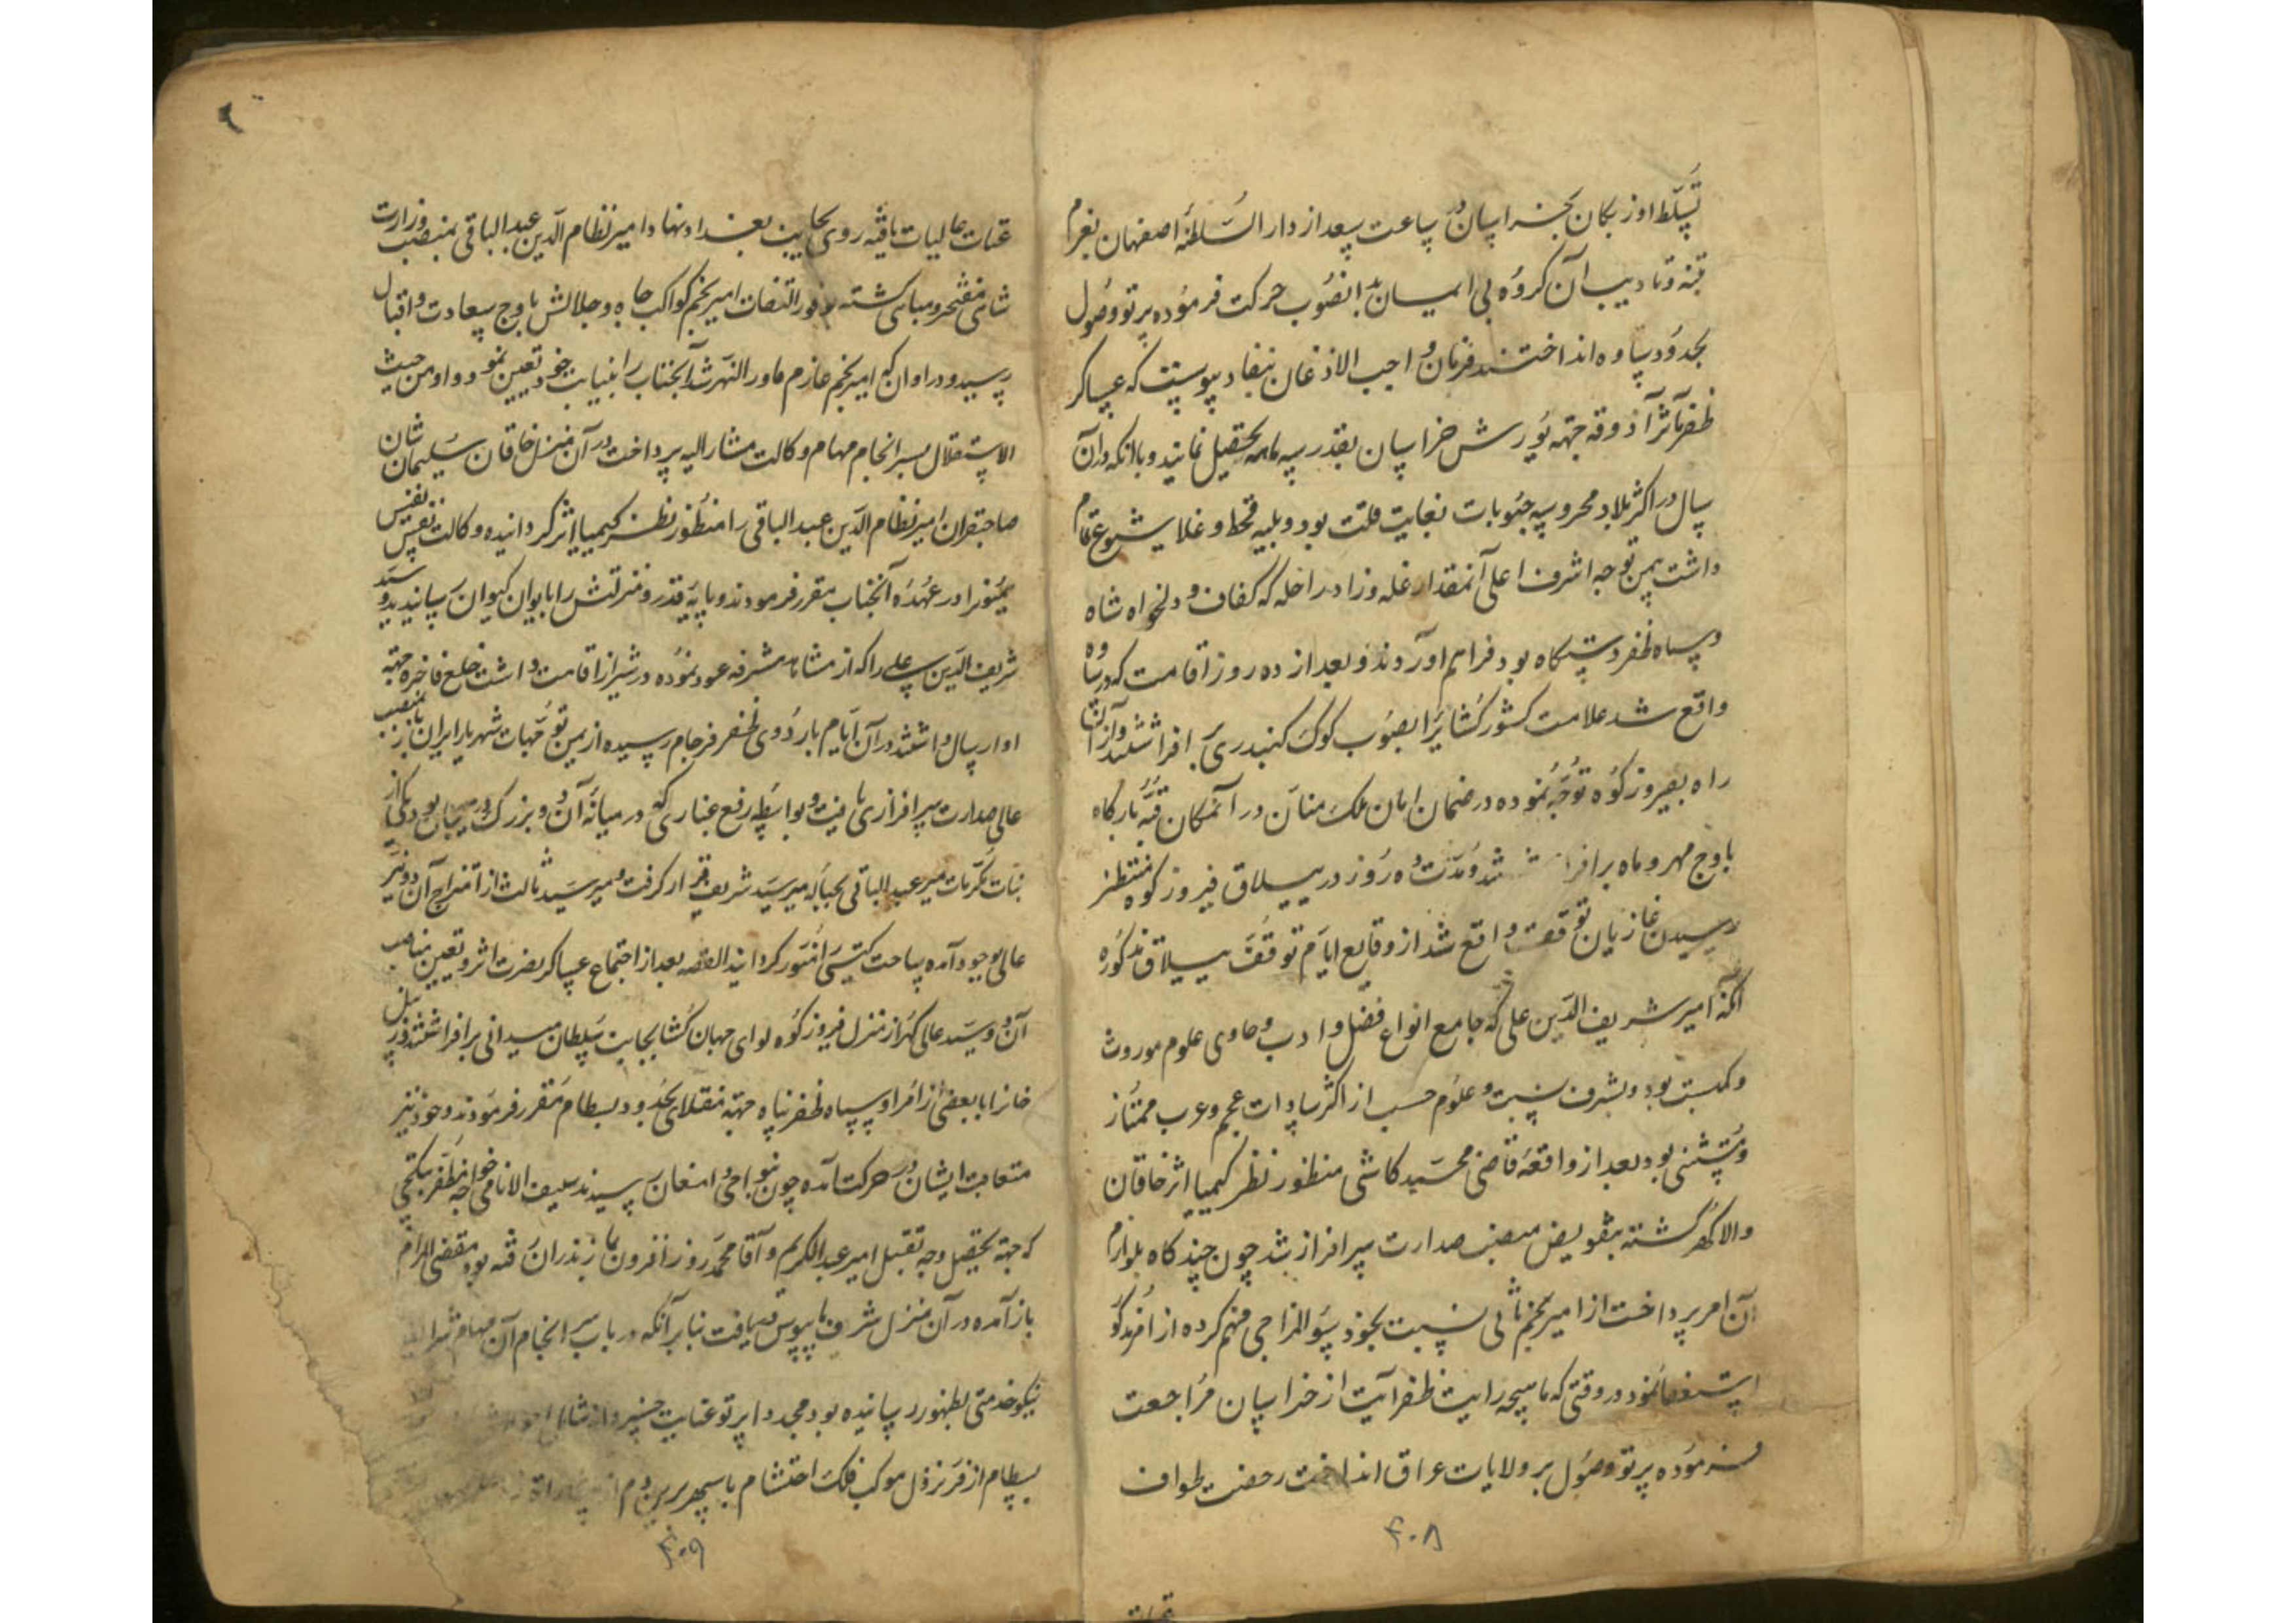 تسلط اوزبکان بخراسان در ساعت سعد از دار السلطنه اصفهان بعزم
تنبه و تادیب آن کروه بی ایمان بدانصوب حرکت فرموده پرتو وصول
بحدود ساوه انداختند و فرمان واجب الاذعان بنفاد پیوست که عساکر
ظفر مآثر آذوقه جهته یورش خراسان بقدر سه ماهه تحصیل نمایند و با آنکه در آن
سال در اکثر بلاد محروسه حبوبات بغایت قلت بود و بلیه قحط و غلا شیوع تمام
داشت بیمن توجه اشرف اعلی آنمقدار غله و زاد راحله که کفاف و دلخواه شاه
و سپاه ظفر دستکاه بود فراهم آوردند و بعد از ده روز اقامت که در ساوه
واقع شد علامت کشور کشا یرا بصوب کوک کنبد ری افراشتند و از آنجا
راه بفیروز کوه توجه نموده در ضمان امان ملک منان در آنمکان قبه بارکاه
باوج مهر و ماه برافراشتند و مدت ده روز در ییلاق فیروز کوه منتظر
رسیدن غازیان توقف واقع شد از وقایع ایام توقف ییلاق مذکوره
آنکه امیر شریف الدین علی که جامع انواع فضل و ادب و حاوی علوم موروث
و مکتسب بود و بشرف نسب و علوم حسب از اکثر سادات عجم و عرب ممتاز
و مستثنی بود بعد از واقعه قاضی محمد کاشی منظور نظر کیمیا اثر خاقان
والا کهر کشته بتفویض منصب صدارت سرافراز شد چون چند کاه بلوازم
آن امر پرداخت از امیر نجم ثانی نسبت بخود سؤ المزاجی فهم کرده از امر مذکور
استعفا نمود در وقتی که ماهیچه رایت ظفر آیت از خراسان مراجعت
فرموده پرتو وصول بر ولایات عراق انداخت رخصت طواف
عتبات عالیات یافته روی بجانب بغداد نهاد امیر نظام الدین عبد الباقی بمنصب وزارت
شاهی مفتخر و مباهی کشته بوفور التفات امیر نجم کواکب جاه و جلالش باوج سعادت و اقبال
رسید و در اوان که امیر نجم عازم ماور النهر شد آنجناب را بنیابت خود تعیین نمود و او من حیث
الاستقلال بسرانجام مهام وکالت مشار الیه پرداخت در آن منزل خاقان سلیمان شان
صاحبقران امیر نظام الدین عبد الباقی را منظور نظر کیمیا اثر کردانیده وکالت نفس نفیس
همیون را در عهده آنجناب مقرر فرمودند و پایه قدر و منزلتش را با یوان کیوان رسانیدند و سید
شریف الدین علی را که از مشاهد مشرفه عود نموده در شیراز اقامت داشت خلع فاخره جهته
او ارسال داشتند در آن ایام باردوی ظفر فرجام رسیده از یمن توجهات شهریار ایران باز بمنصب
عالی صدارت سرافرازی یافت و بواسطه رفع غباری که در میانه آن دو بزرک در میان بود یکی از
بنات مکرمات میر عبد الباقی بحباله میر سید شریف قرار کرفت و میر سید ثالث از امتزاج آن دو نیر
عالی بوجود آمده ساحت کیتی را منور کردانید القصه بعد از اجتماع عساکر نصرت اثر و تعیین مناصب
آن دو سید عالی کهر از منزل فیروز کوه لوای جهان کشا بجانب سلطان میدانی برافراشتند و زینل
خانرا با بعضی از امرا و سپاه ظفر پناه جهته منقلای بحدود بسطام مقرر فرمودند و خود نیز
متعاقب ایشان در حرکت آمده چون بنواحی دامغان رسیدند سیف الانامی خواجه مظفر بتکچی
که جهته تحصیل وجه تقبل امیر عبد الکریم و آقا محمد روز افزون بمازندران رفته بود مقضی المرام
باز آمده در آن منزل شرف پایبوس دریافت بنا بر آنکه در باب سرانجام آن مهام
نیکو خدمتی بظهور رسانیده بود مجددا پرتو عنایت خسروانه
بسطام از فر نزول موکب فلک احتشام با سپهر برین دم
۴۰۸
۴۰۹